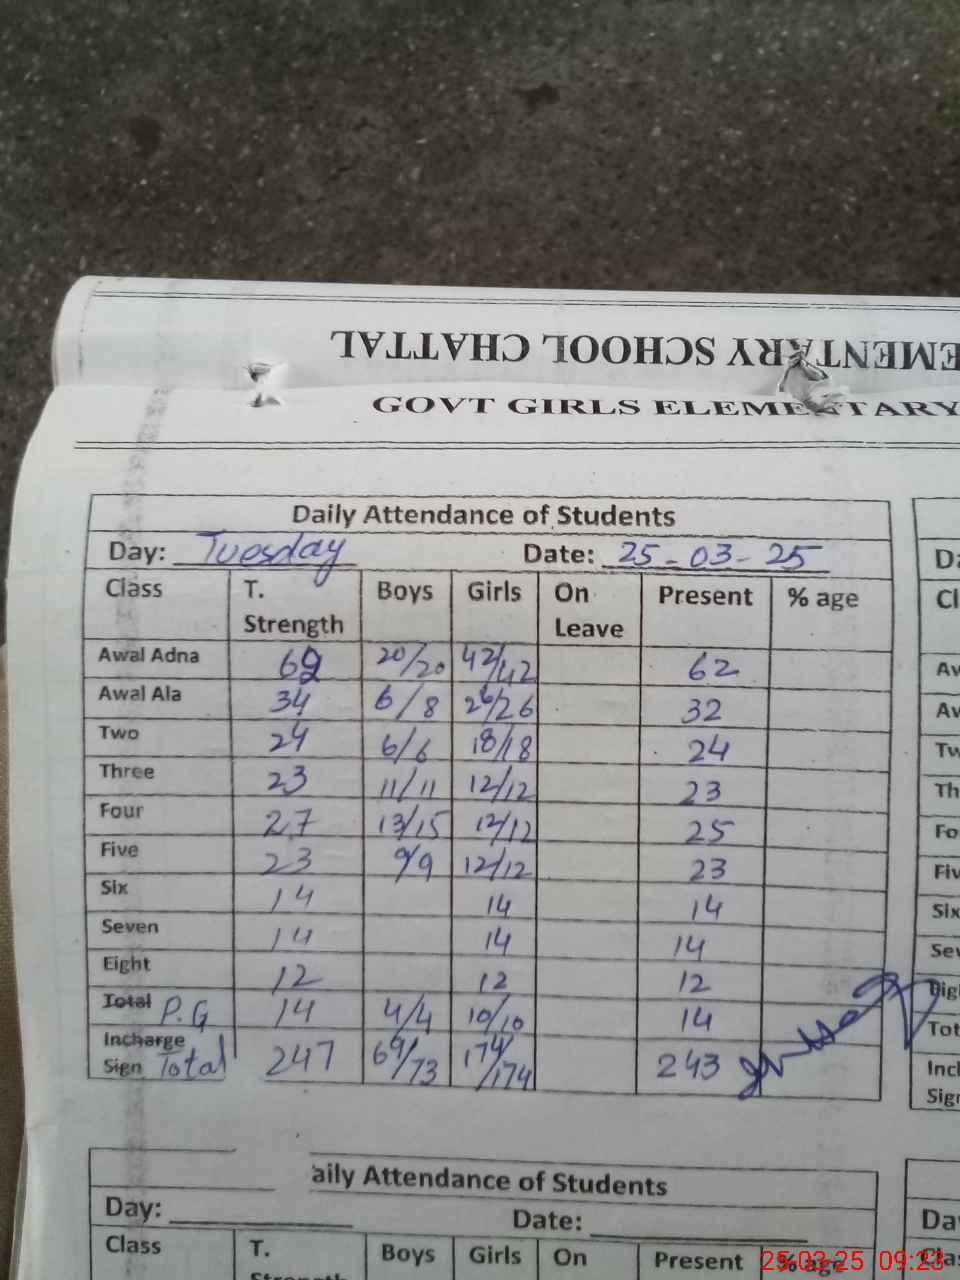 EMENTARY SCHOOL CHATTAL
GOVT GIRLS ELEMENTARY
Daily Attendance of Students
Day: Tuesday Date: 25-03-25
Class T. Strength Boys Girls On Leave Present % age
Awal Adna 62 20/20 42/42 62
Awal Ala 34 6/8 26/26 32
Two 24 6/6 18/18 24
Three 23 11/11 12/12 23
Four 27 13/15 12/12 25
Five 23 9/9 12/12 23
Six 14 14 14
Seven 14 14 14
Eight 12 12 12
Total P.G 14 4/4 10/10 14
Incharge
Sign Total 247 69/73 174/174 243
Da
Cl
Av
Av
Tw
Th
Fo
Fiv
Six
Sev
Eig
Tot
Incl
Sign
aily Attendance of Students
Day: Date:
Class T. Boys Girls On Present % age
Strength
Da
Cla
25.03.25 09:23